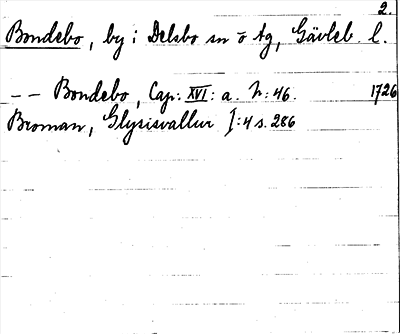 2.
Bondebo, by i Delsbo sn o tg, Gävleb. l.
-- Bondebo, Cap: XVI: a. h: 46. 1726
Broman, Glysisvallur I: 4 s. 286